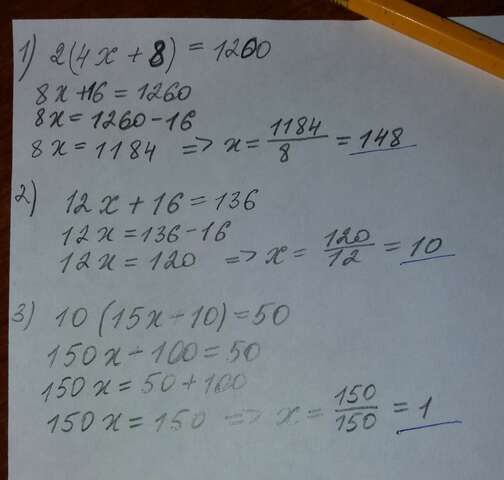 1) 2(4x + 8) = 1260
8x + 16 = 1260
8x = 1260 - 16
8x = 1184 => x = 1184/8 = 148
2) 12x + 16 = 136
12x = 136 - 16
12x = 120 => x = 120/12 = 10
3) 10 (15x - 10) = 50
150x - 100 = 50
150x = 50 + 100
150x = 150 => x = 150/150 = 1